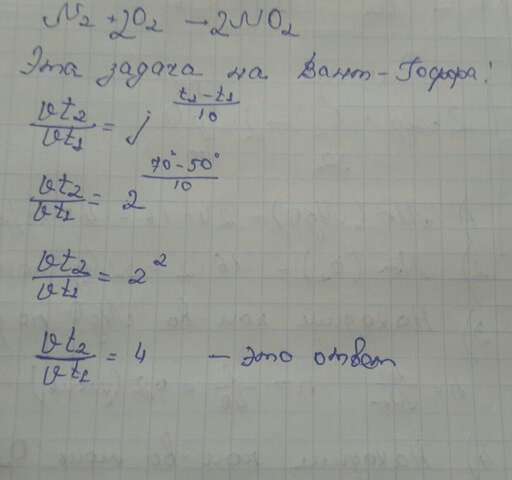 N₂ + 2O₂ → 2NO₂
Эта задача на Вант-Гоффа!
vt₂/vt₁ = j^((t₂-t₁)/10)
vt₂/vt₁ = 2^((70°-50°)/10)
vt₂/vt₁ = 2²
vt₂/vt₁ = 4 – это ответ